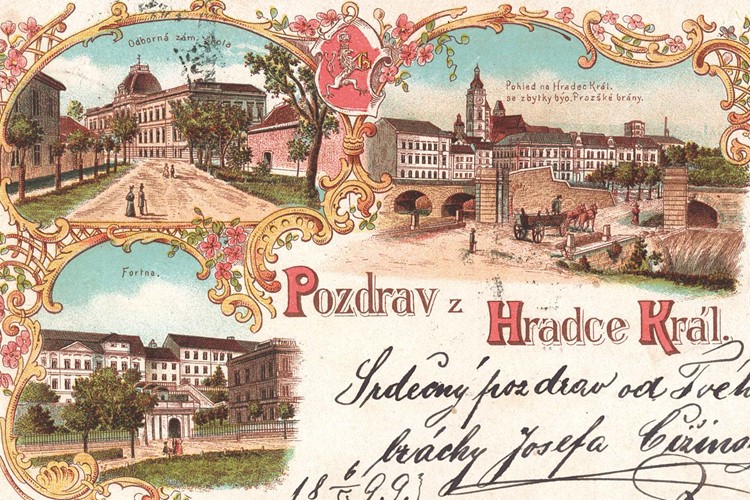 Odborná zám. škola
Pohled na Hradec Král.
se zbytky býv. Pražské brány.
Fortna.
Pozdrav z Hradce Král.
Srdečný pozdrav od Tvéh
bráchy Josefa
18 6